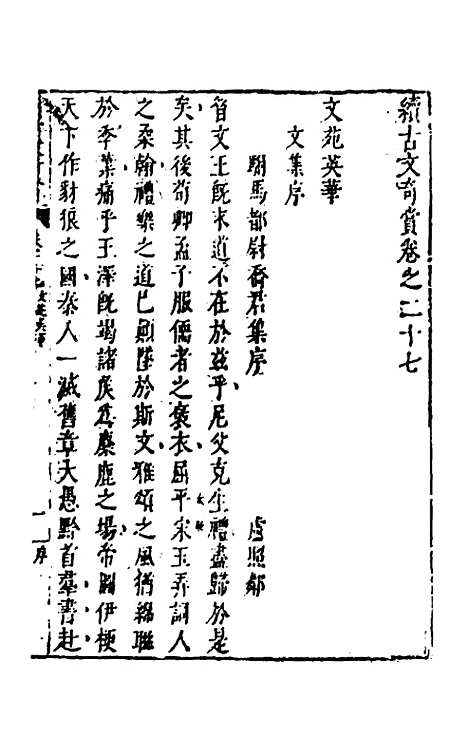 續古文奇賞卷之二十七
文苑英華
文集序
駙馬都尉喬君集序 盧照鄰
昔文王旣沒道不在於兹乎尼父克生禮盡歸於是
矣其後荀卿孟子服儒者之褒衣屈平宋玉弄詞人
之柔翰禮樂之道已顛墜於斯文雅頌之風猶綿聯
於季葉痛乎王澤旣竭諸侯為麋鹿之場帝圖伊梗
天下作豺狼之國秦人一滅舊章大愚黔首羣書赴
序